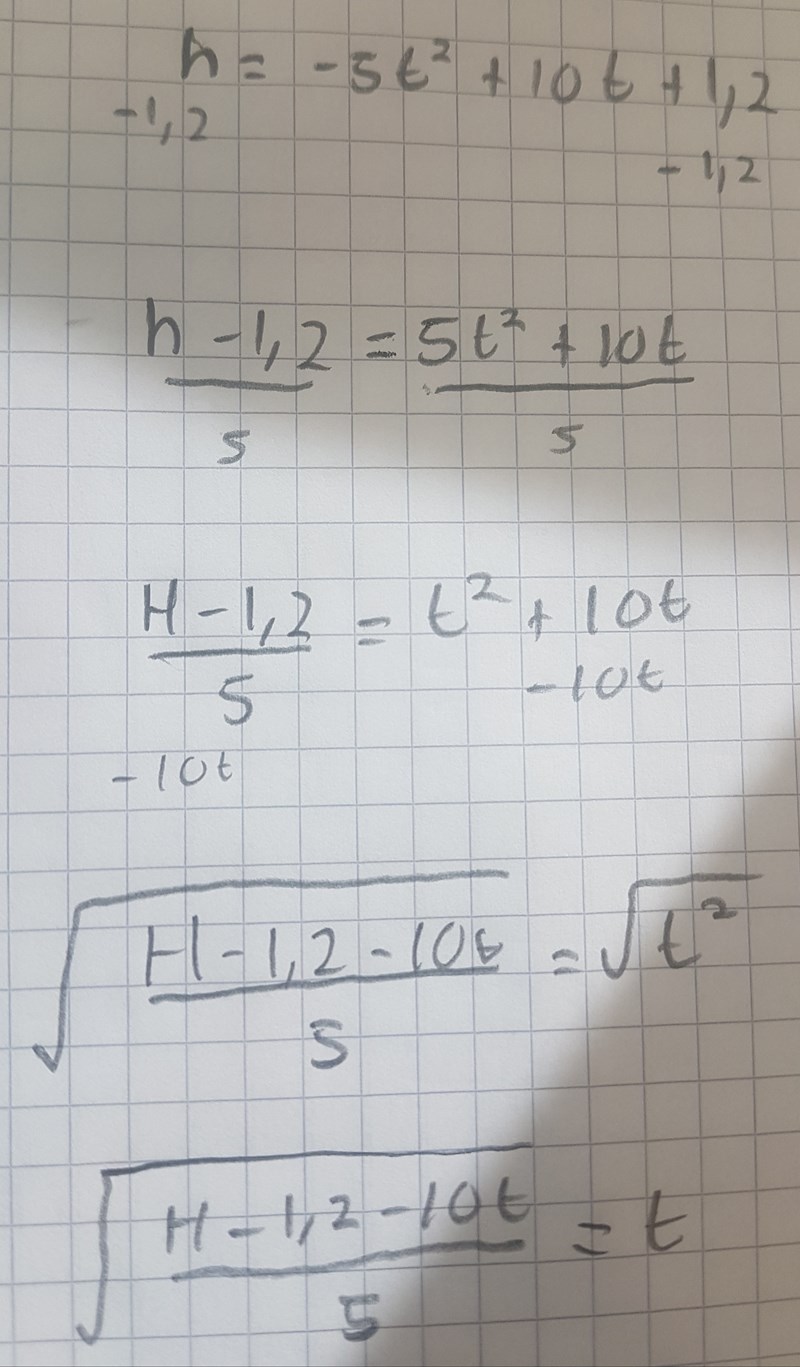 h = -5t² + 10t + 1,2
-1,2 -1,2
h - 1,2 = 5t² + 10t
5 5
H - 1,2 = t² + 10t
5 -10t
-10t
√ H - 1,2 - 10t = √t²
5
√ H - 1,2 - 10t = t
5